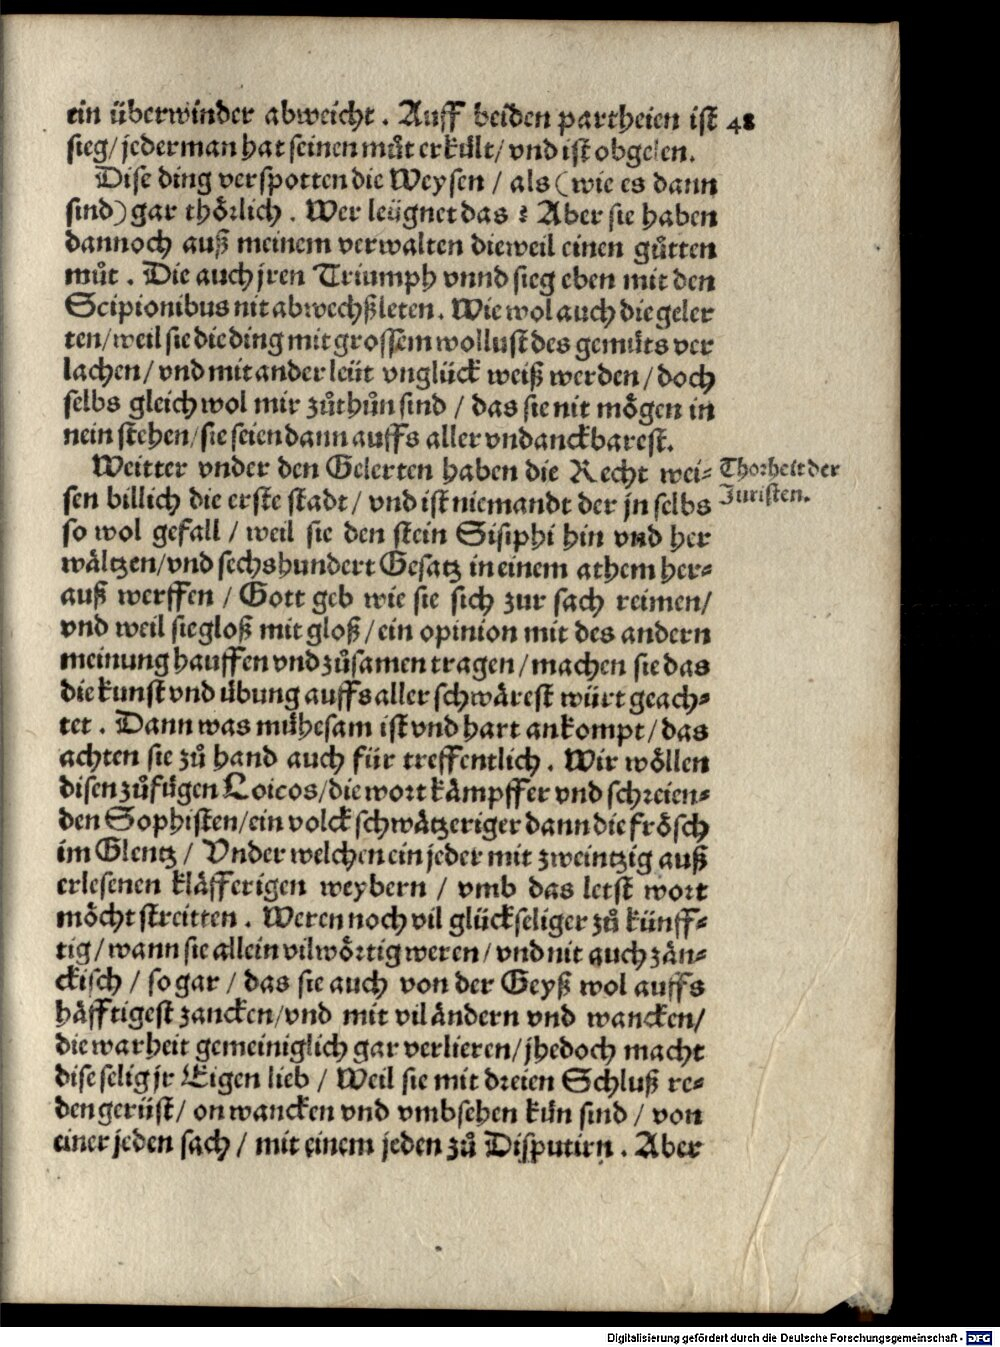 ein überwinder abweicht . Auff beiden partheien ist 48
sieg/ jederman hat seinen můt erkült/ vnd ist obgelen.
Dise ding verspotten die Weysen / als (wie es dann
sind) gar thörlich . Wer leügnet das ? Aber sie haben
dannoch auß meinem verwalten dieweil einen gůtten
můt . Die auch jren Triumph vnnd sieg eben mit den
Scipionibus nit abwechßleten. Wie wol auch die geler
ten/ weil sie die ding mit grossem wollust des gemüts ver
lachen/ vnd mit ander leüt vnglück weiß werden/ doch
selbs gleich wol mir zůthůn sind / das sie nit mögen in
nein stehen/ sie seien dann auffs aller vndanckbarest.
Weitter vnder den Gelerten haben die Recht wei⸗
Thorheit der
Juristen.
sen billich die erste stadt/ vnd ist niemandt der jn selbs
so wol gefall / weil sie den stein Sisiphi hin vnd her
wältzen/ vnd sechshundert Gesatz in einem athem her⸗
auß werffen / Gott geb wie sie sich zur sach reimen/
vnd weil sie gloß mit gloß/ ein opinion mit des andern
meinung hauffen vnd zůsamen tragen/ machen sie das
die kunst vnd übung auffs aller schwärest würt geach⸗
tet . Dann was mühesam ist vnd hart ankompt/ das
achten sie zů hand auch für treffentlich . Wir wöllen
disen zůfügen Loicos/ die wort kämpffer vnd schreien⸗
den Sophisten/ ein volck schwätzeriger dann die frösch
im Glentz / Vnder welchen ein jeder mit zweintzig auß
erlesenen kläfferigen weybern / vmb das letst wort
möcht streitten . Weren noch vil glückseliger zů künff⸗
tig/ wann sie allein vilwörtig weren/ vnd nit auch zän⸗
ckisch / so gar / das sie auch von der Geyß wol auffs
häfftigest zancken/ vnd mit vil ändern vnd wancken/
die warheit gemeiniglich gar verlieren/ jhedoch macht
dise selig jr Eigen lieb / Weil sie mit dreien Schluß re⸗
den gerüst/ on wancken vnd vmbsehen kün sind / von
einer jeden sach / mit einem jeden zů Disputirn . Aber
Digitalisierung gefördert durch die Deutsche Forschungsgemeinschaft - DFG